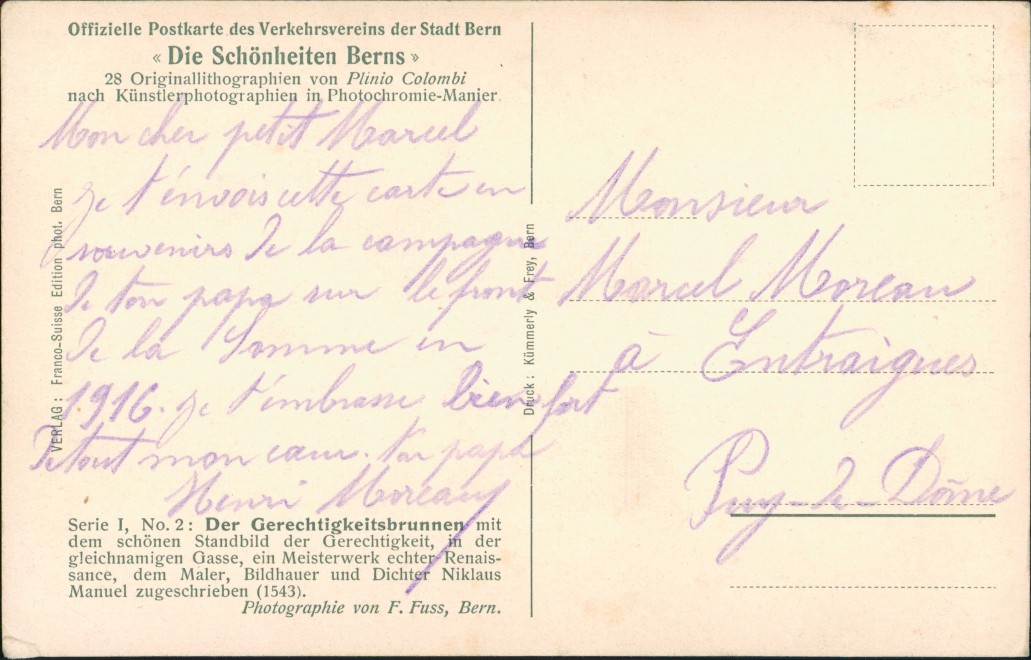 Offizielle Postkarte des Verkehrsvereins der Stadt Bern
« Die Schönheiten Berns »
28 Originallithographien von Plinio Colombi
nach Künstlerphotographien in Photochromie-Manier.
Mon cher petit Marcel
Je t'envois cette carte en
souvenirs de la campagne
de ton papa sur le front
de la Somme en
1916. Je t'embrasse bien fort
De tout mon cœur. Ton papa
Henri Moreau
Serie I, No. 2: Der Gerechtigkeitsbrunnen mit
dem schönen Standbild der Gerechtigkeit, in der
gleichnamigen Gasse, ein Meisterwerk echter Renais-
sance, dem Maler, Bildhauer und Dichter Niklaus
Manuel zugeschrieben (1543).
Photographie von F. Fuss, Bern.
VERLAG: Franco-Suisse Edition phot. Bern
Druck: Kümmerly & Frey, Bern
Monsieur
Marcel Moreau
à Entraigues
Puy-de-Dôme